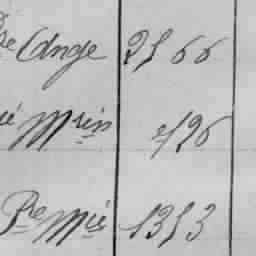 Pre Conge 2566
ié Mrin 2/26
Pre Mié 1353